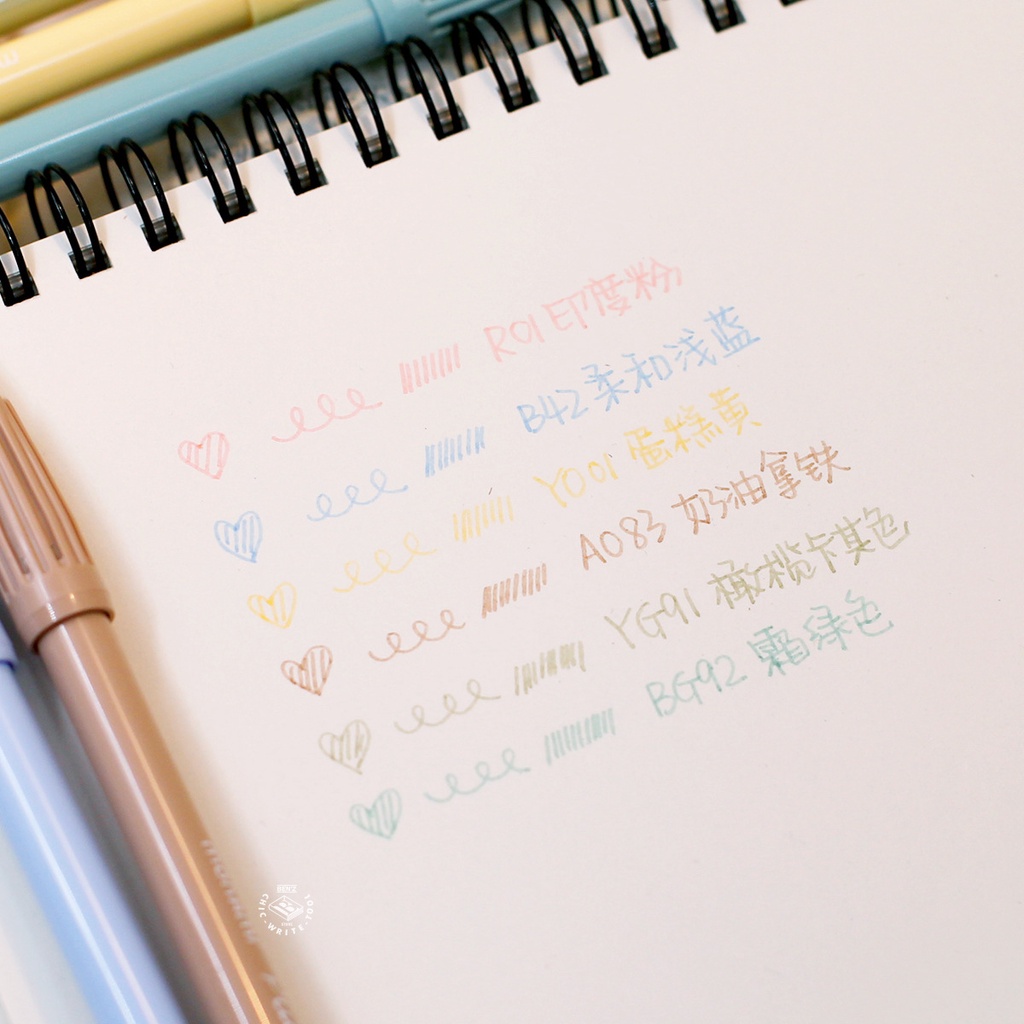 R01 印度粉
B42 柔和浅蓝
Y001 蛋糕黄
A083 奶油拿铁
YG91 橄榄卡其色
BG92 霜绿色
CHIC·WRITE·TOOL